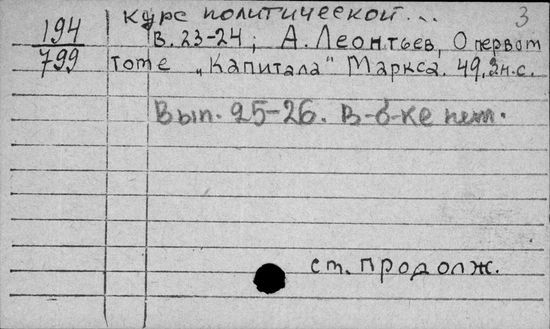 Курс политической... 3
194
799
В. 23-24; А. Леонтьев, О первом
томе „Капитала" Маркса. 49, 2н.с.
Вып. 25-26. В-б-ке нет.
ст. продолж.